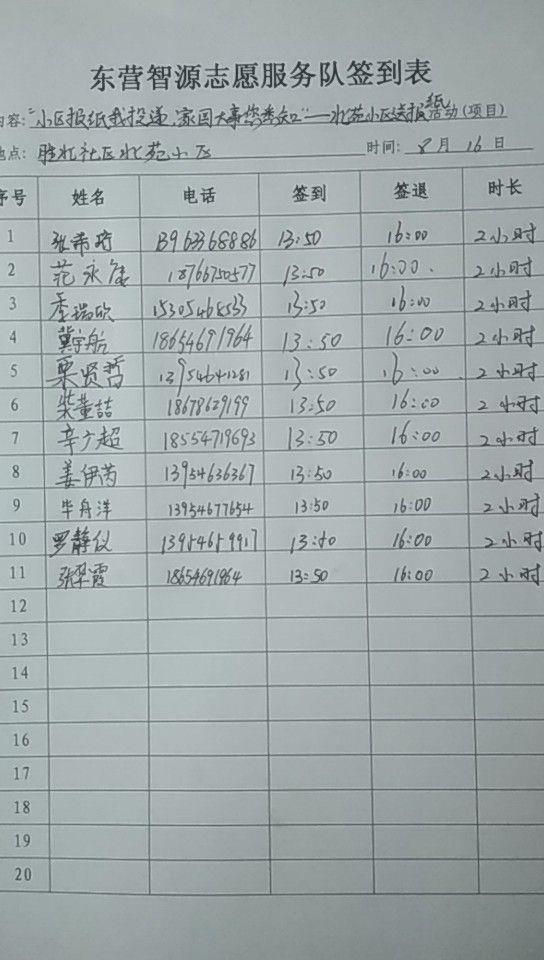 东营智源志愿服务队签到表
内容:"小区报纸我投递,家国大事您悉知"——北苑小区送报纸活动(项目)
地点: 胜北社区北苑小区 时间: 8月16日
序号 姓名 电话 签到 签退 时长
1 张希琦 13963368886 13:50 16:00 2小时
2 范永健 18766750577 13:50 16:00. 2小时
3 李瑞欣 15305468533 13:50 16:00 2小时
4 冀宇航 18654691964 13:50 16:00 2小时
5 栗贤哲 13954641281 13:50 16:00 2小时
6 柴董喆 18678629199 13:50 16:00 2小时
7 辛广超 18554719693 13:50 16:00 2小时
8 姜伊芮 13954636367 13:50 16:00 2小时
9 毕舟洋 13954677654 13:50 16:00 2小时
10 罗静仪 13954659917 13:50 16:00 2小时
11 张翠霞 18654691964 13:50 16:00 2小时
12
13
14
15
16
17
18
19
20